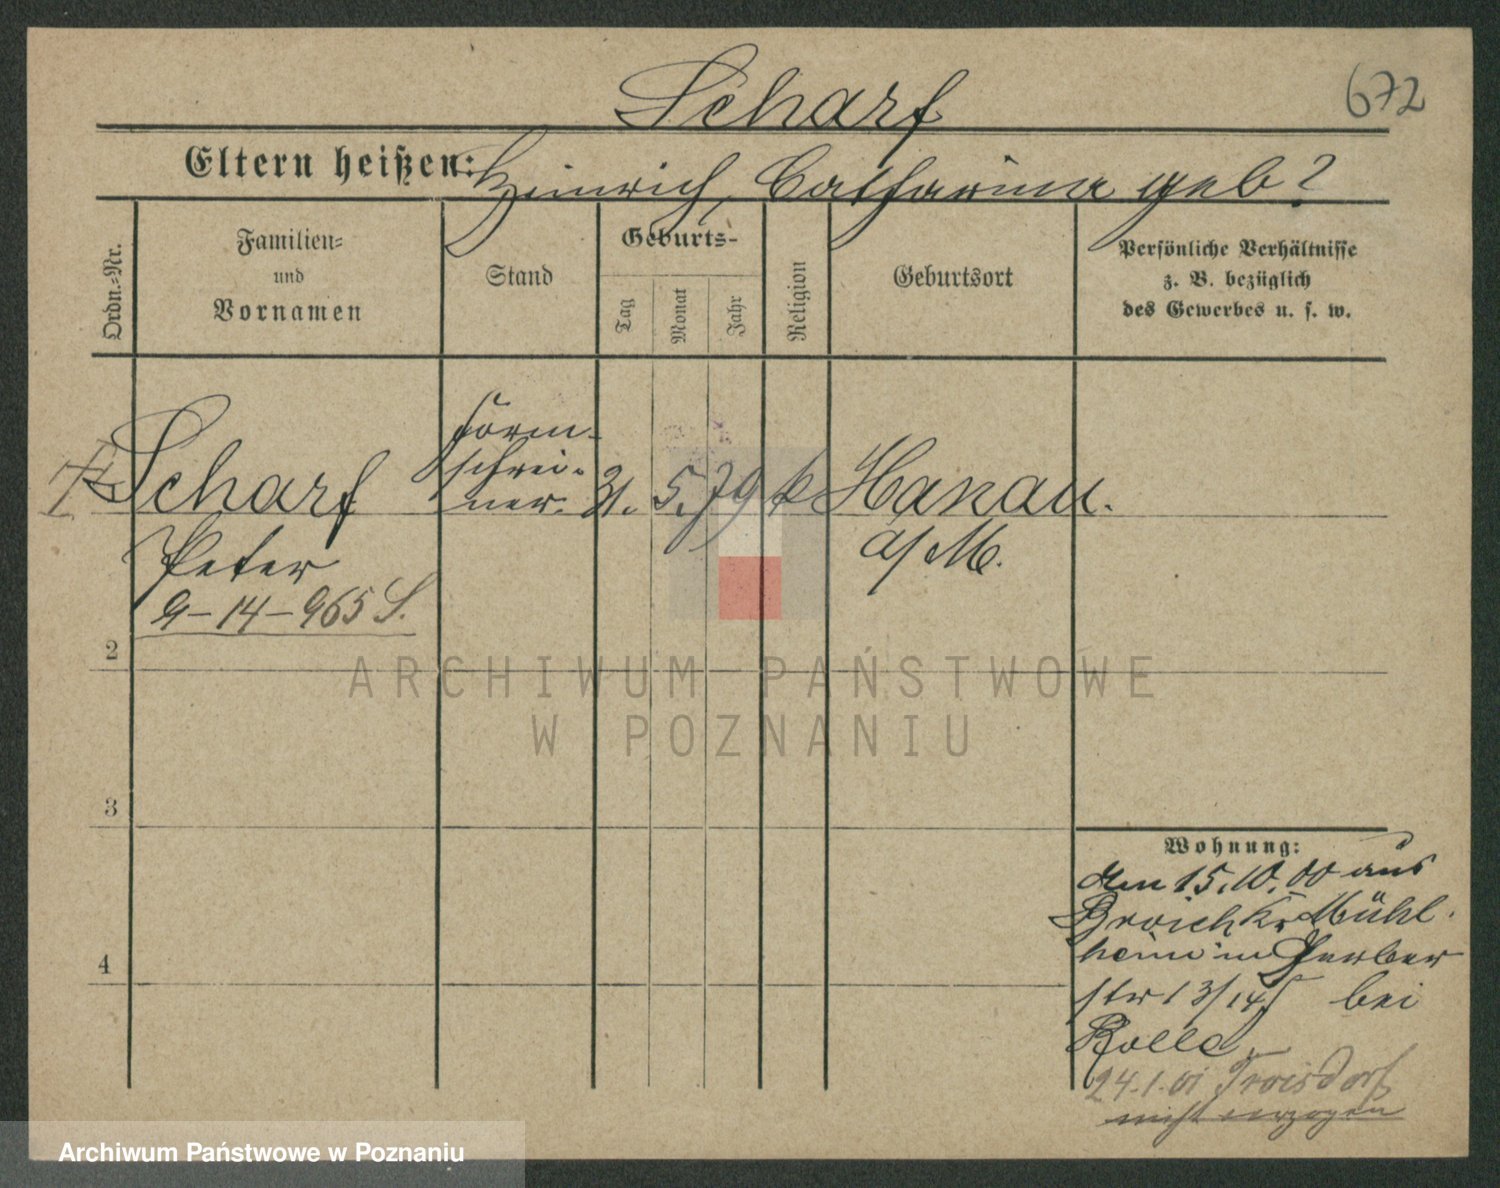 Scharf
672
Eltern heißen: Heinrich, Catharina geb?
Ordn.-Nr.
Familien-
und
Vornamen
Stand
Geburts-
Tag
Monat
Jahr
Religion
Geburtsort
Persönliche Verhältnisse
z. B. bezüglich
des Gewerbes u. s. w.
Scharf
Peter
9-14-965 S.
Form-
schrei-
ner.
31. 5. 79 k
Hanau.
a/M.
2
3
4
Wohnung:
den 15.10.00 aus
Broich Kr Mühl
heim in Gerber
str 13/14, bei
Rolle
24.1.01 Troisdorf
nicht verzogen
ARCHIWUM PAŃSTWOWE
W POZNANIU
Archiwum Państwowe w Poznaniu